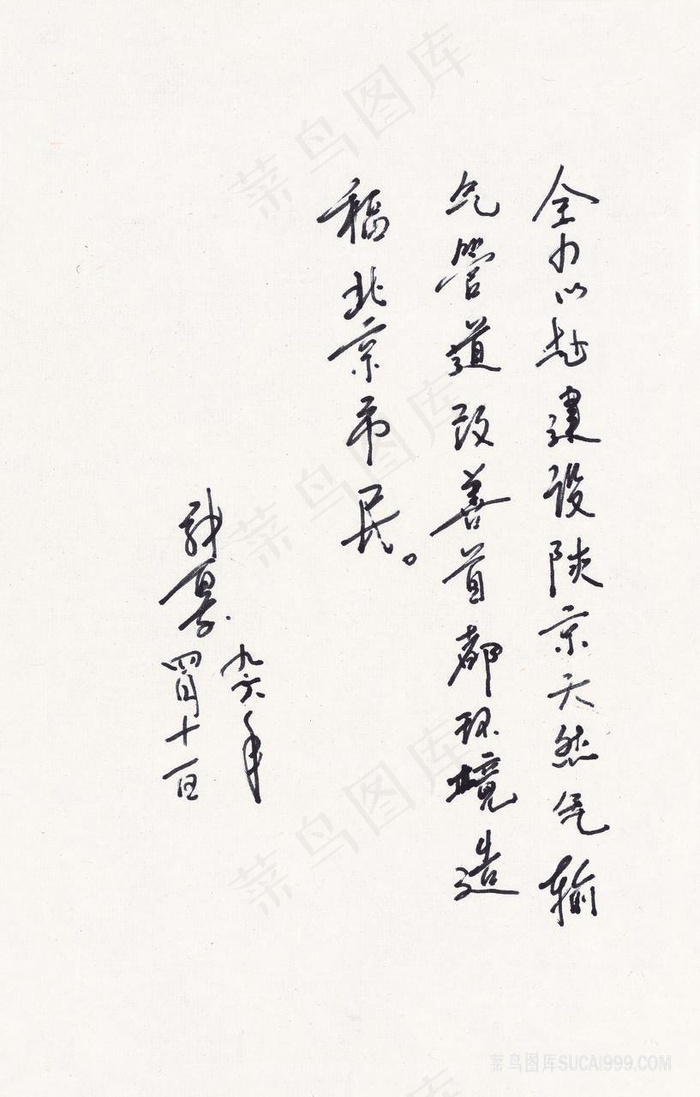 全力以赴建设陕京天然气输
气管道改善首都环境造
福北京市民。
九六年
四月十一日
菜鸟图库
菜鸟图库
菜鸟图库
菜鸟图库SUCAI999.COM